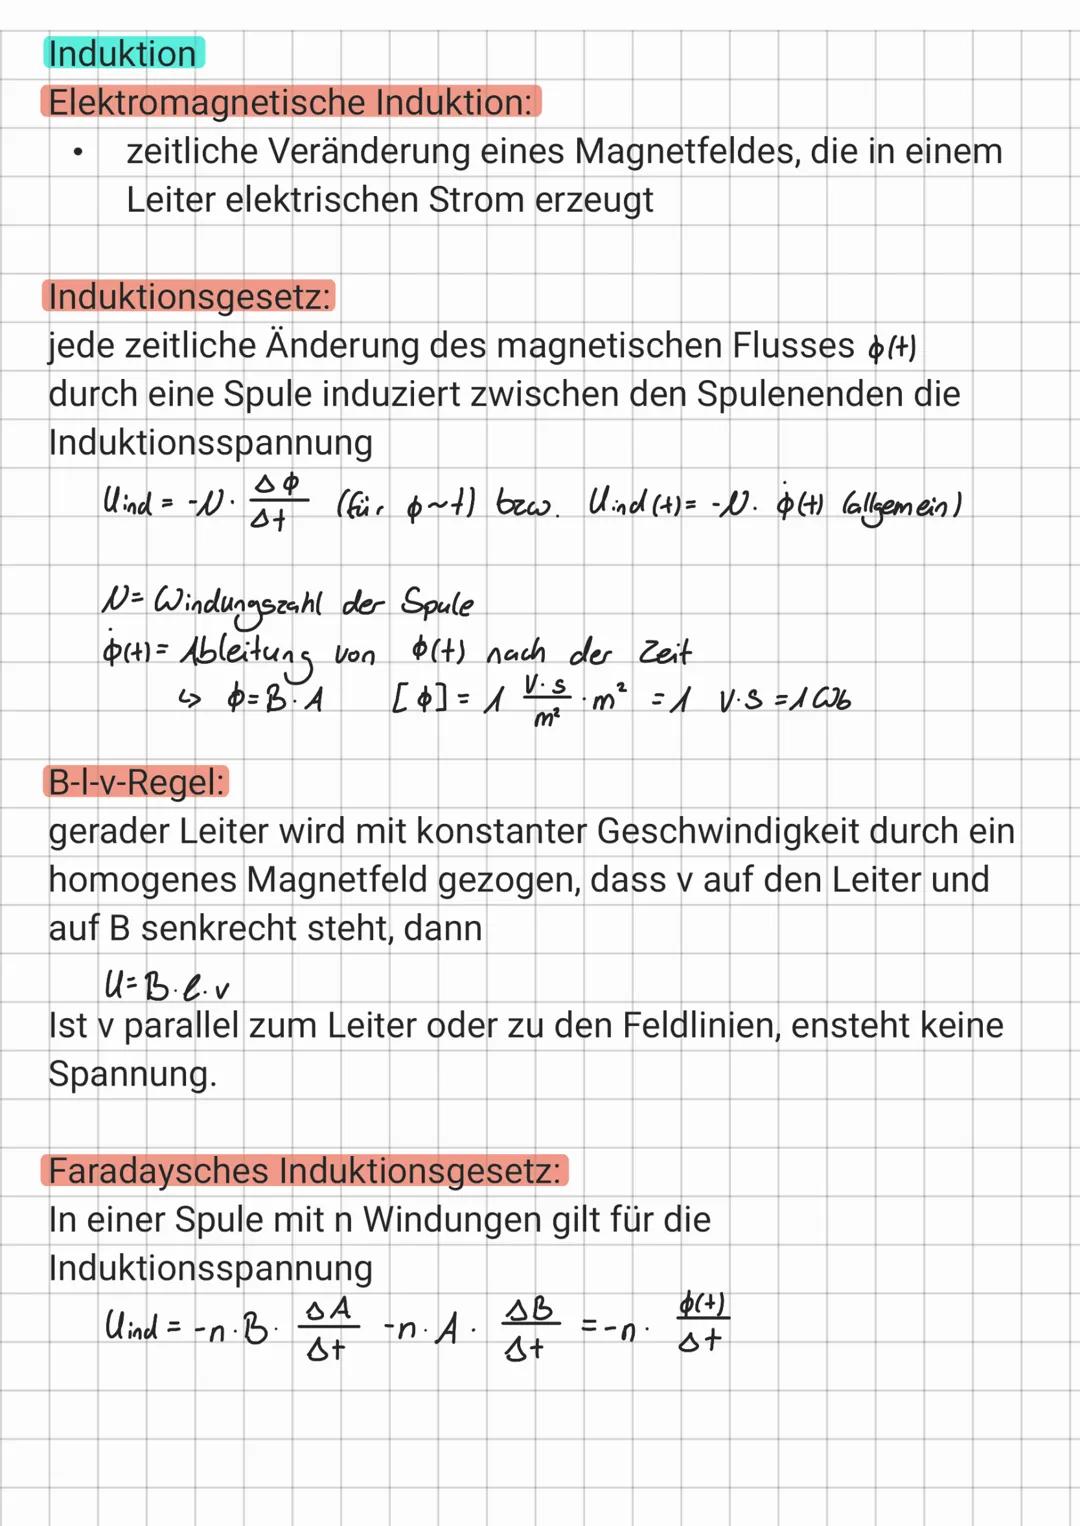 Induktion
Elektromagnetische Induktion:
• zeitliche Veränderung eines Magnetfeldes, die in einem
Leiter elektrischen Strom erzeugt
Induktionsgesetz:
jede zeitliche Änderung des magnetischen Flusses ϕ(t)
durch eine Spule induziert zwischen den Spulenenden die
Induktionsspannung
Uind = -N · Δϕ/Δt (für ϕ~t) bzw. Uind(t) = -N · ϕ̇(t) (allgemein)
N = Windungszahl der Spule
ϕ̇(t) = Ableitung von ϕ(t) nach der Zeit
↳ ϕ = B · A [ϕ] = 1 V·s/m² · m² = 1 V·s = 1 Wb
B-l-v-Regel:
gerader Leiter wird mit konstanter Geschwindigkeit durch ein
homogenes Magnetfeld gezogen, dass v auf den Leiter und
auf B senkrecht steht, dann
U = B · l · v
Ist v parallel zum Leiter oder zu den Feldlinien, ensteht keine
Spannung.
Faradaysches Induktionsgesetz:
In einer Spule mit n Windungen gilt für die
Induktionsspannung
Uind = -n · B · ΔA/Δt -n · A · ΔB/Δt = -n · ϕ(t)/Δt